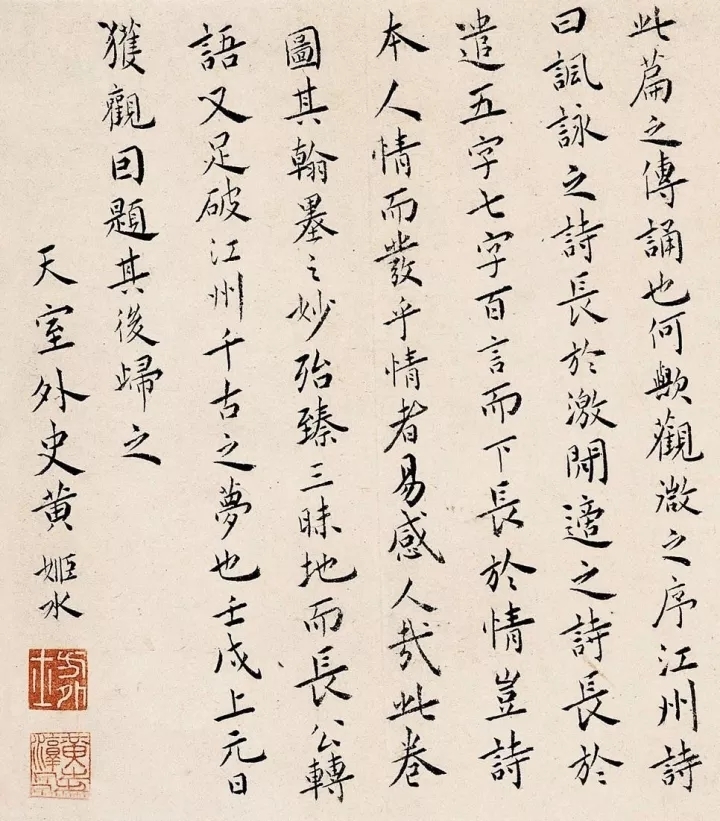 此篇之傳誦也何歟觀微之序江州詩
曰諷詠之詩長於激閒適之詩長於
遣五字七字百言而下長於情豈詩
本人情而發乎情者易感人哉此卷
圖其翰墨之妙殆臻三昧地而長公轉
語又足破江州千古之夢也壬戌上元日
獲觀因題其後歸之
天室外史黃姬水